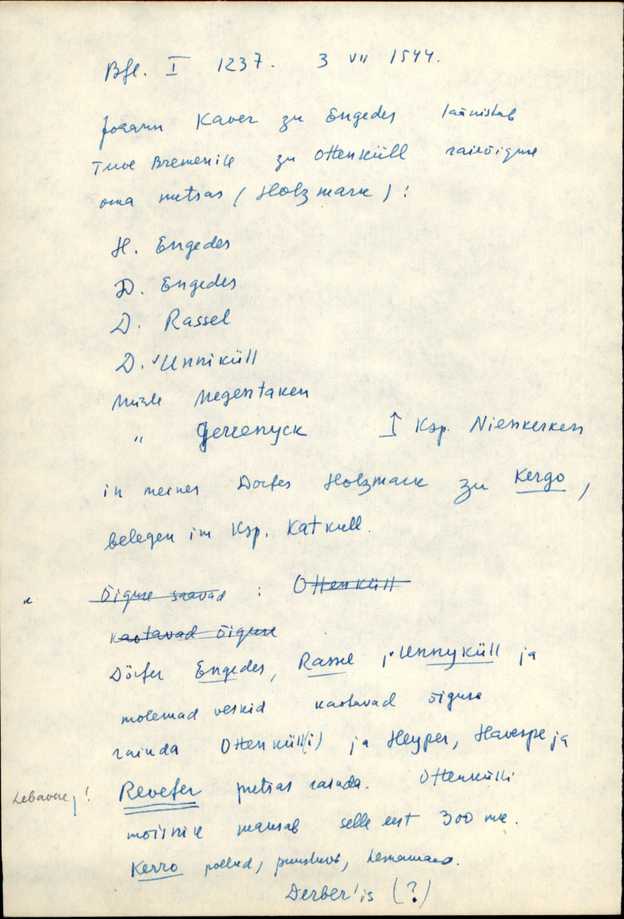 Bfl. I 1237. 3 VII 1544.
Johann Kaver zu Engedes läänistab
Tuve Bremenile zu Ottenküll raieõiguse
oma metsas (Holzmark):
H. Engedes
D. Engedes
D. Rassel
D. Unniküll
Mühle Negentaken
" Gerrenyck ↑ Ksp. Nienkerken
in meines Dorfes Holzmark zu Kergo,
belegen im Ksp. Katkull.
Õiguse saavad : Ottenküll
kaotavad õiguse
Dörfer Engedes, Rassel, Unnyküll ja
molemad veskid kaotavad õiguse
rainda Ottenküll(i) ja Heyper, Haverpe ja
Lebavere! Revefer metsas raiuda. Ottenkülli
moisnik maksab selle eest 300 mk.
Kerro põllud, puustust, heinamaa.
Derber'is (?)